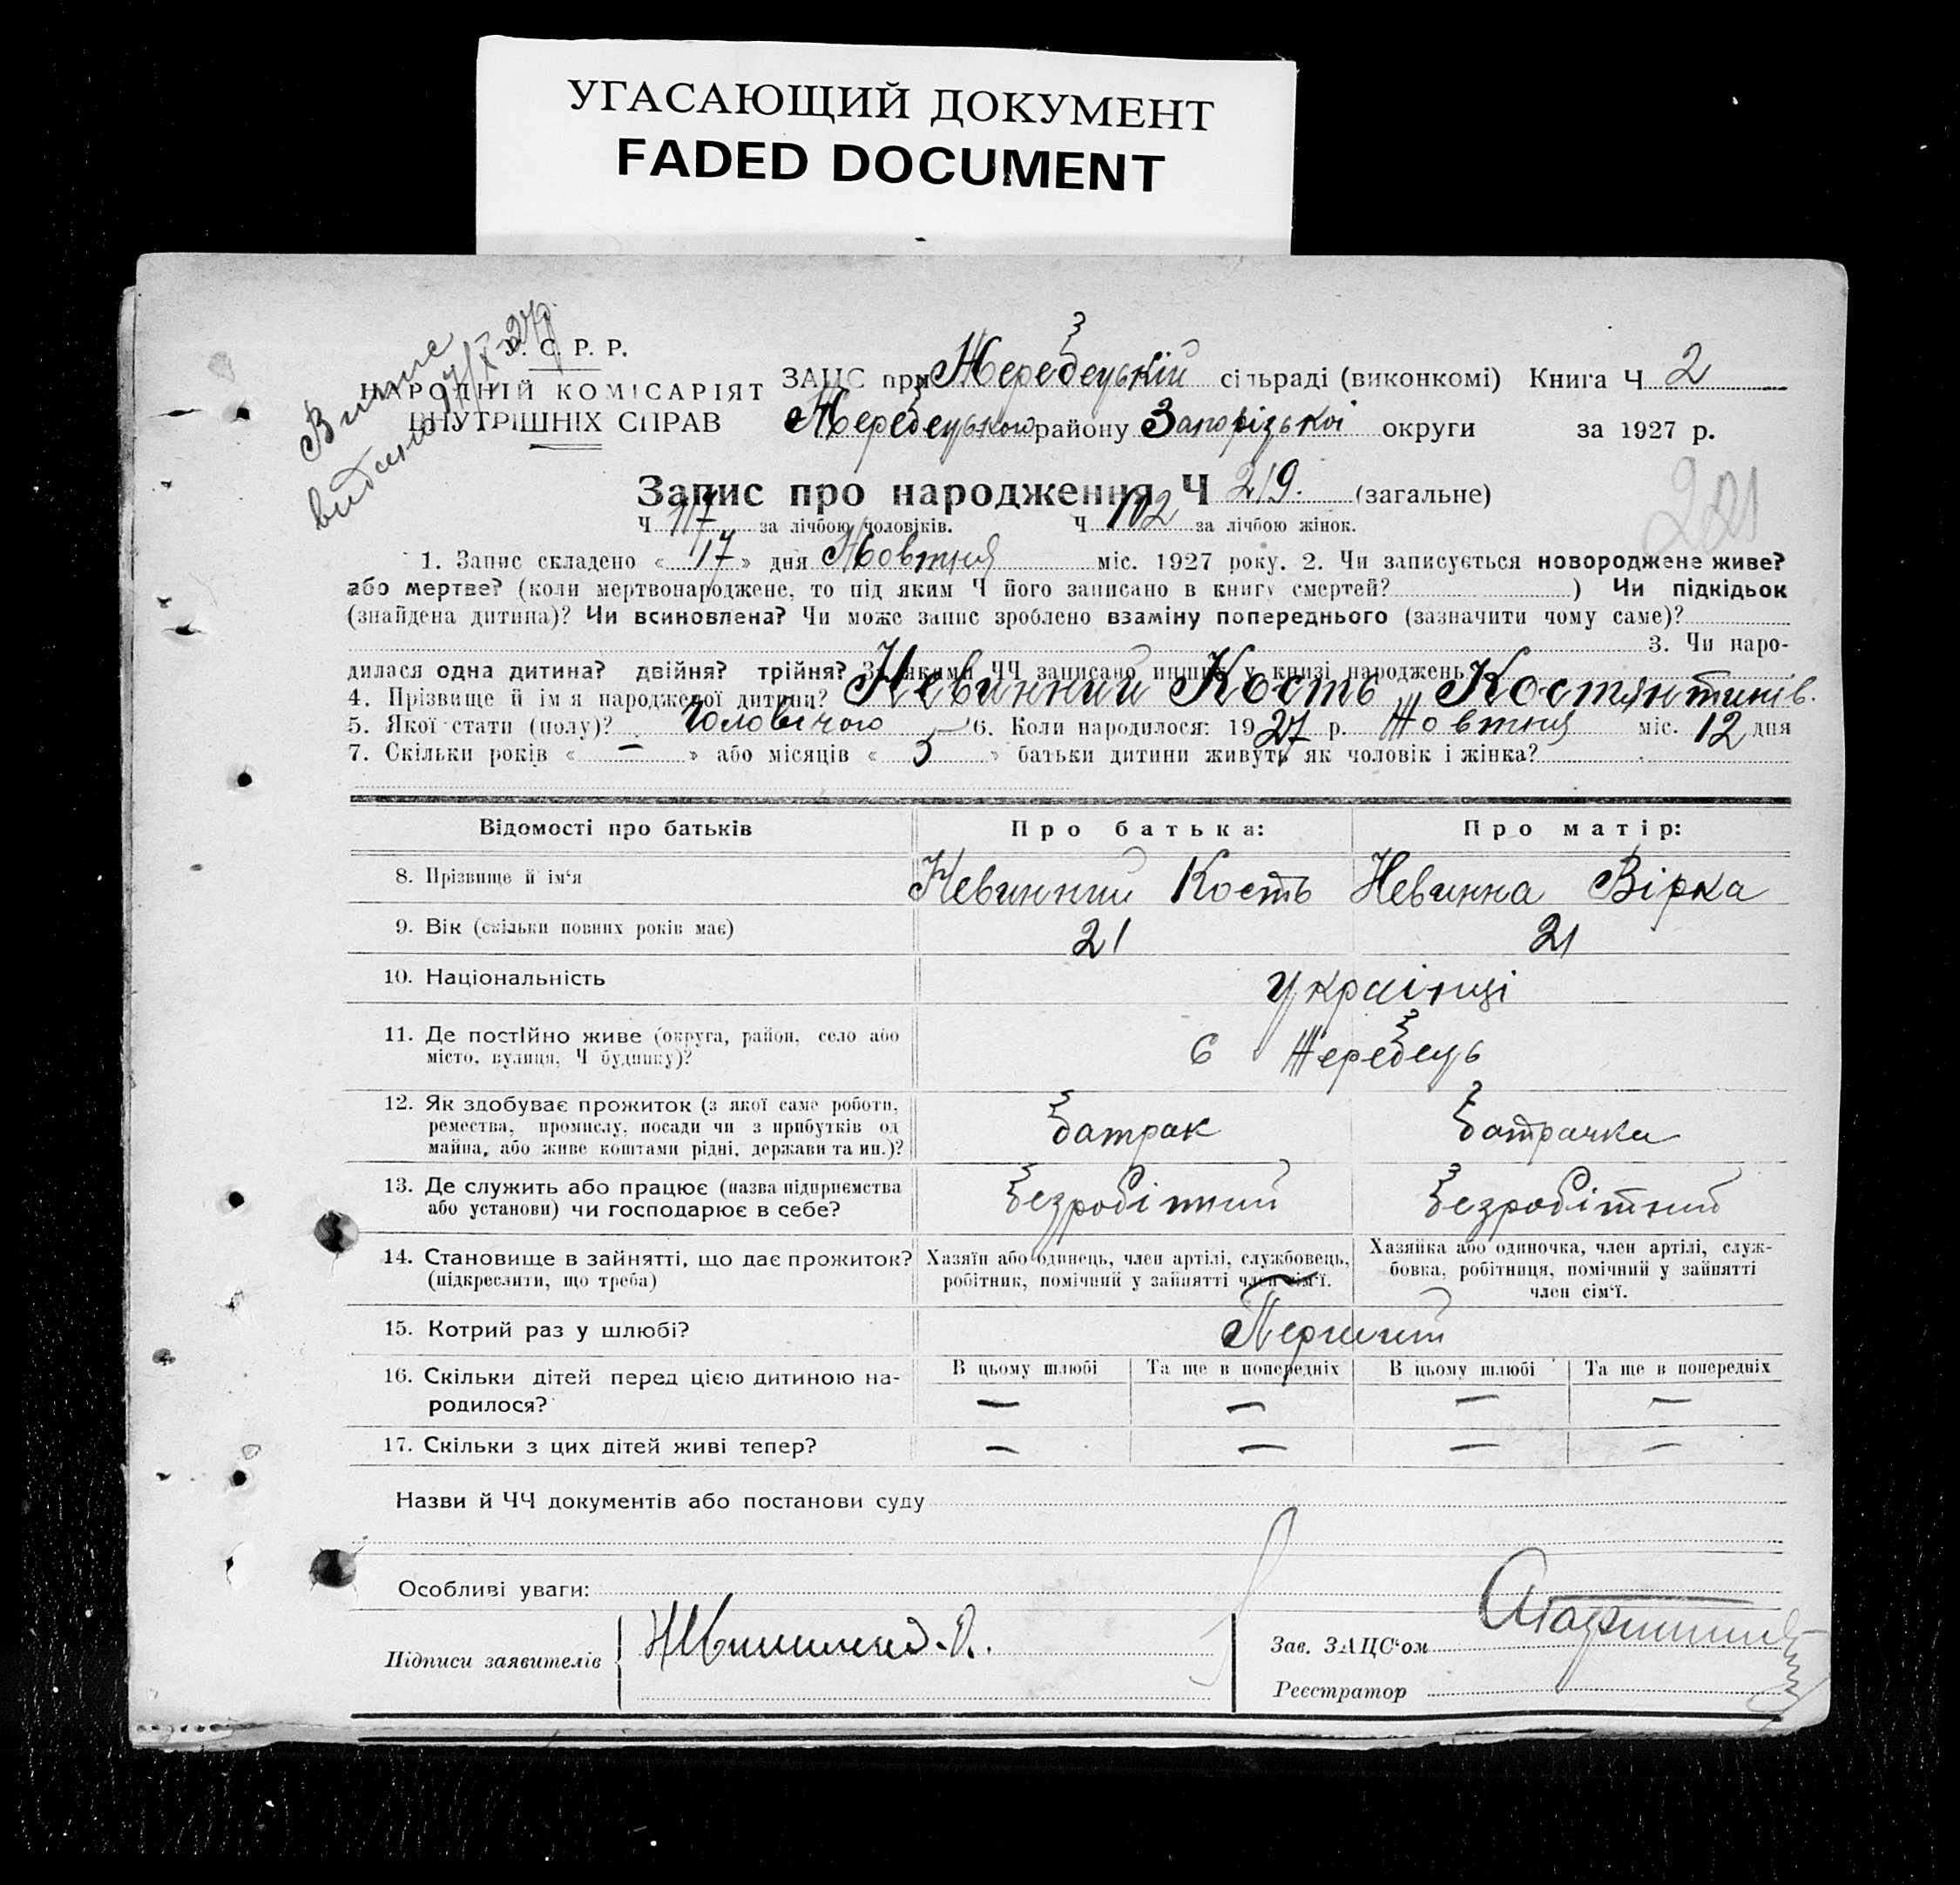 УГАСАЮЩИЙ ДОКУМЕНТ
FADED DOCUMENT
Виписе
видано
У. С. Р. Р.
НАРОДНІЙ КОМІСАРІЯТ
ВНУТРІШНІХ СПРАВ
ЗАЦС при Жеребецькій сільраді (виконкомі) Книга Ч 2
Жеребецького району Запорізької округи за 1927 р.
Запис про народження Ч 219. (загальне)
221
Ч 117 за лічбою чоловіків. Ч 102 за лічбою жінок.
1. Запис складено « 17 » дня Жовтня міс. 1927 року. 2. Чи записується новороджене живе?
або мертве? (коли мертвонароджене, то під яким Ч його записано в книгу смертей? ) Чи підкідьок
(знайдена дитина)? Чи всиновлена? Чи може запис зроблено взаміну попереднього (зазначити чому саме)?
3. Чи наро-
дилася одна дитина? двійня? трійня? За якими ЧЧ записано инших у книзі народжень
4. Прізвище й ім'я народженої дитини? Невинний Кость Костянтинів.
5. Якої стати (полу)? Чоловічого 6. Коли народилося: 1927 р. Жовтня міс. 12 дня
7. Скільки років « — » або місяців « 5 » батьки дитини живуть як чоловік і жінка?
Відомості про батьків Про батька: Про матір:
8. Прізвище й ім‘я Невинний Кость Невинна Вірка
9. Вік (скільки повних років має) 21 21
10. Національність Українці
11. Де постійно живе (округа, район, село або
місто, вулиця, Ч будинку)? С Жеребець
12. Як здобуває прожиток (з якої саме роботи,
ремества, промислу, посади чи з прибутків од
майна, або живе коштами рідні, держави та ин.)? батрак батрачка
13. Де служить або працює (назва підприємства
або установи) чи господарює в себе? безробітний безробітний
14. Становище в зайнятті, що дає прожиток?
(підкреслити, що треба)
Хазяїн або одинець, член артілі, службовець,
робітник, помічний у зайнятті член сім‘ї.
Хазяйка або одиночка, член артілі, служ-
бовка, робітниця, помічний у зайнятті
член сім‘ї.
15. Котрий раз у шлюбі? Перший
16. Скільки дітей перед цією дитиною на-
родилося?
В цьому шлюбі Та ще в попередніх В цьому шлюбі Та ще в попередніх
— — — —
17. Скільки з цих дітей живі тепер? — — — —
Назви й ЧЧ документів або постанови суду
Особливі уваги:
Підписи заявителів
Зав. ЗАЦС‘ом
Реєстратор